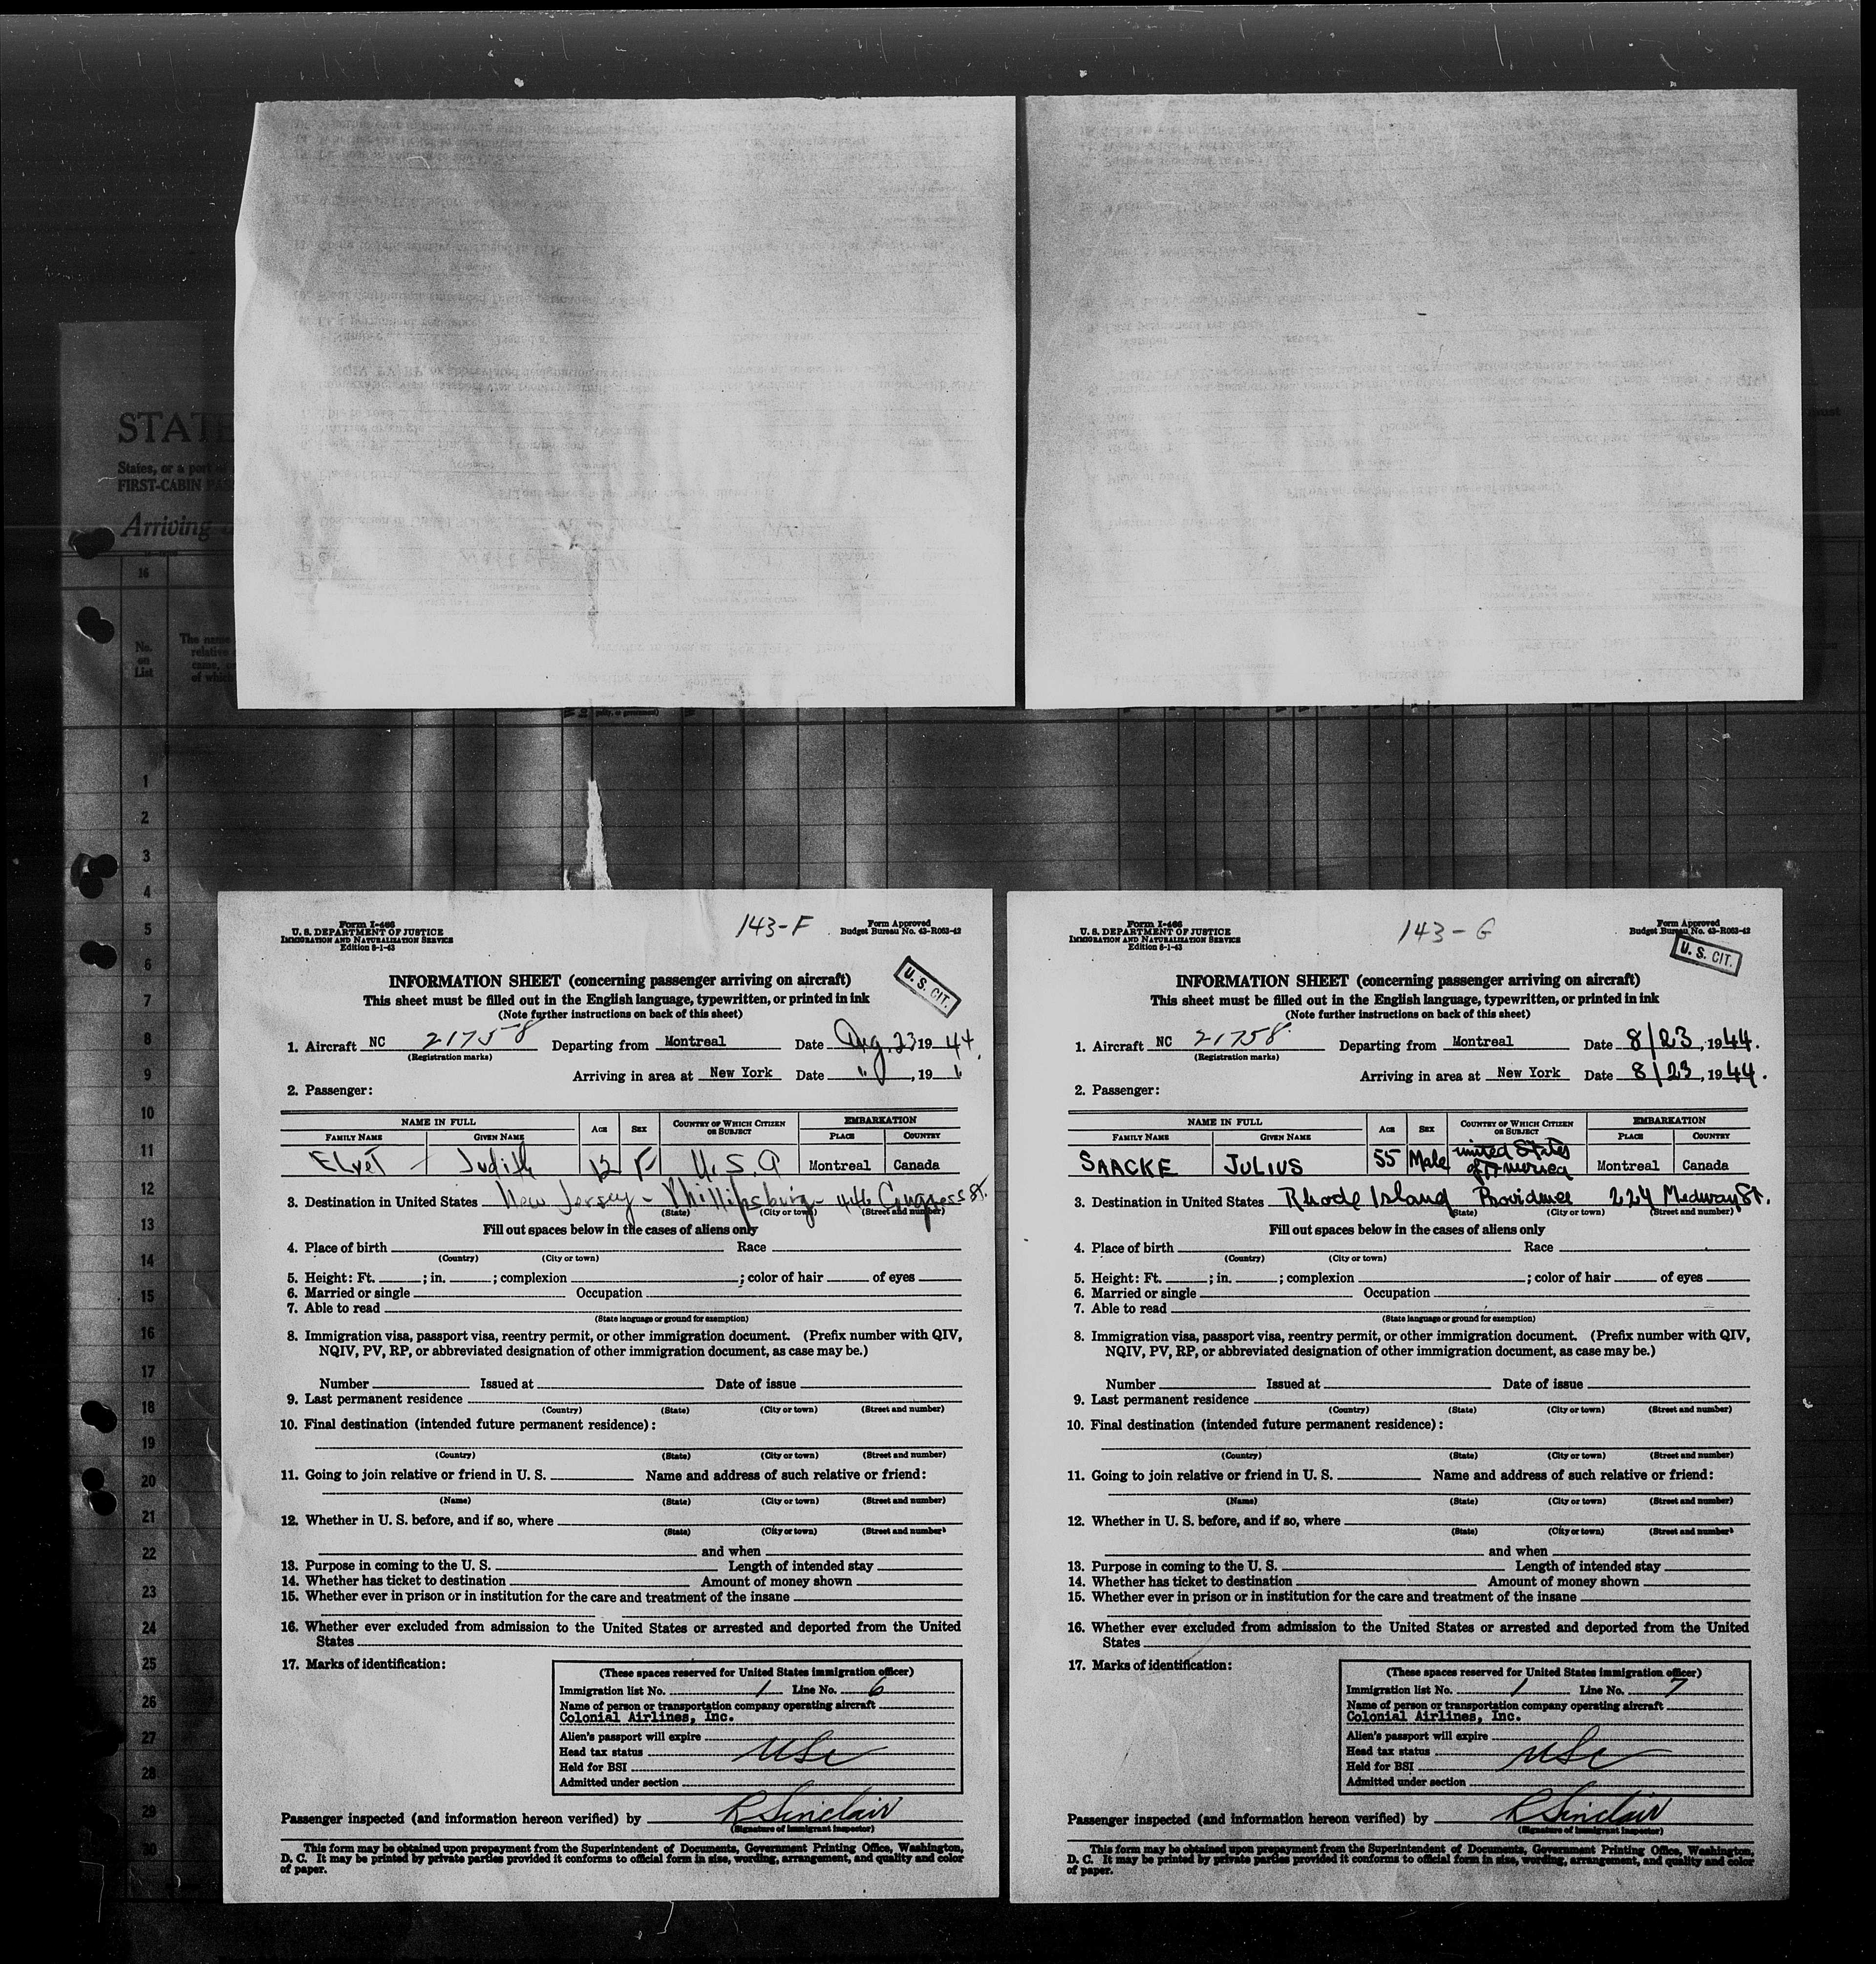 STATE
States, or a port of
FIRST-CABIN PAS
Arriving
16
No.
on
List
The name
relative
came,
of which
1
2
3
4
5
6
7
8
9
10
11
12
13
14
15
16
17
18
19
20
21
22
23
24
25
26
27
28
29
30
Form I-466
U. S. DEPARTMENT OF JUSTICE
IMMIGRATION AND NATURALIZATION SERVICE
Edition 8-1-43
143-F
Form Approved
Budget Bureau No. 43-R063-42
U. S. CIT.
INFORMATION SHEET (concerning passenger arriving on aircraft)
This sheet must be filled out in the English language, typewritten, or printed in ink
(Note further instructions on back of this sheet)
1. Aircraft NC 21758 Departing from Montreal Date Aug. 23 19 44.
(Registration marks)
Arriving in area at New York Date " , 19 "
2. Passenger:
NAME IN FULL AGE SEX COUNTRY OF WHICH CITIZEN OR SUBJECT EMBARKATION
FAMILY NAME GIVEN NAME PLACE COUNTRY
Judith 12 F U. S. A Montreal Canada
3. Destination in United States New Jersey - Phillipsburg - 446 Congress St.
(State) (City or town) (Street and number)
Fill out spaces below in the cases of aliens only
4. Place of birth Race
(Country) (City or town)
5. Height: Ft. ; in. ; complexion ; color of hair of eyes
6. Married or single Occupation
7. Able to read
(State language or ground for exemption)
8. Immigration visa, passport visa, reentry permit, or other immigration document. (Prefix number with QIV,
NQIV, PV, RP, or abbreviated designation of other immigration document, as case may be.)
Number Issued at Date of issue
9. Last permanent residence
(Country) (State) (City or town) (Street and number)
10. Final destination (intended future permanent residence):
(Country) (State) (City or town) (Street and number)
11. Going to join relative or friend in U. S. Name and address of such relative or friend:
(Name) (State) (City or town) (Street and number)
12. Whether in U. S. before, and if so, where
(State) (City or town) (Street and number)
and when
13. Purpose in coming to the U. S. Length of intended stay
14. Whether has ticket to destination Amount of money shown
15. Whether ever in prison or in institution for the care and treatment of the insane
16. Whether ever excluded from admission to the United States or arrested and deported from the United
States
17. Marks of identification:
(These spaces reserved for United States immigration officer)
Immigration list No. 1 Line No. 6
Name of person or transportation company operating aircraft
Colonial Airlines, Inc.
Alien's passport will expire
Head tax status USC
Held for BSI
Admitted under section
Passenger inspected (and information hereon verified) by R Sinclair
(Signature of Immigrant Inspector)
This form may be obtained upon prepayment from the Superintendent of Documents, Government Printing Office, Washington,
D. C. It may be printed by private parties provided it conforms to official form in size, wording, arrangement, and quality and color
of paper.
Form I-466
U. S. DEPARTMENT OF JUSTICE
IMMIGRATION AND NATURALIZATION SERVICE
Edition 8-1-43
143-G
Form Approved
Budget Bureau No. 43-R063-42
U. S. CIT.
INFORMATION SHEET (concerning passenger arriving on aircraft)
This sheet must be filled out in the English language, typewritten, or printed in ink
(Note further instructions on back of this sheet)
1. Aircraft NC 21758 Departing from Montreal Date 8/23, 1944.
(Registration marks)
Arriving in area at New York Date 8/23, 1944.
2. Passenger:
NAME IN FULL AGE SEX COUNTRY OF WHICH CITIZEN OR SUBJECT EMBARKATION
FAMILY NAME GIVEN NAME PLACE COUNTRY
SAACKE JULIUS 55 Male United States of America Montreal Canada
3. Destination in United States Rhode Island Providence 224 Medway St.
(State) (City or town) (Street and number)
Fill out spaces below in the cases of aliens only
4. Place of birth Race
(Country) (City or town)
5. Height: Ft. ; in. ; complexion ; color of hair of eyes
6. Married or single Occupation
7. Able to read
(State language or ground for exemption)
8. Immigration visa, passport visa, reentry permit, or other immigration document. (Prefix number with QIV,
NQIV, PV, RP, or abbreviated designation of other immigration document, as case may be.)
Number Issued at Date of issue
9. Last permanent residence
(Country) (State) (City or town) (Street and number)
10. Final destination (intended future permanent residence):
(Country) (State) (City or town) (Street and number)
11. Going to join relative or friend in U. S. Name and address of such relative or friend:
(Name) (State) (City or town) (Street and number)
12. Whether in U. S. before, and if so, where
(State) (City or town) (Street and number)
and when
13. Purpose in coming to the U. S. Length of intended stay
14. Whether has ticket to destination Amount of money shown
15. Whether ever in prison or in institution for the care and treatment of the insane
16. Whether ever excluded from admission to the United States or arrested and deported from the United
States
17. Marks of identification:
(These spaces reserved for United States immigration officer)
Immigration list No. 1 Line No. 7
Name of person or transportation company operating aircraft
Colonial Airlines, Inc.
Alien's passport will expire
Head tax status USC
Held for BSI
Admitted under section
Passenger inspected (and information hereon verified) by R Sinclair
(Signature of Immigrant Inspector)
This form may be obtained upon prepayment from the Superintendent of Documents, Government Printing Office, Washington,
D. C. It may be printed by private parties provided it conforms to official form in size, wording, arrangement, and quality and color
of paper.